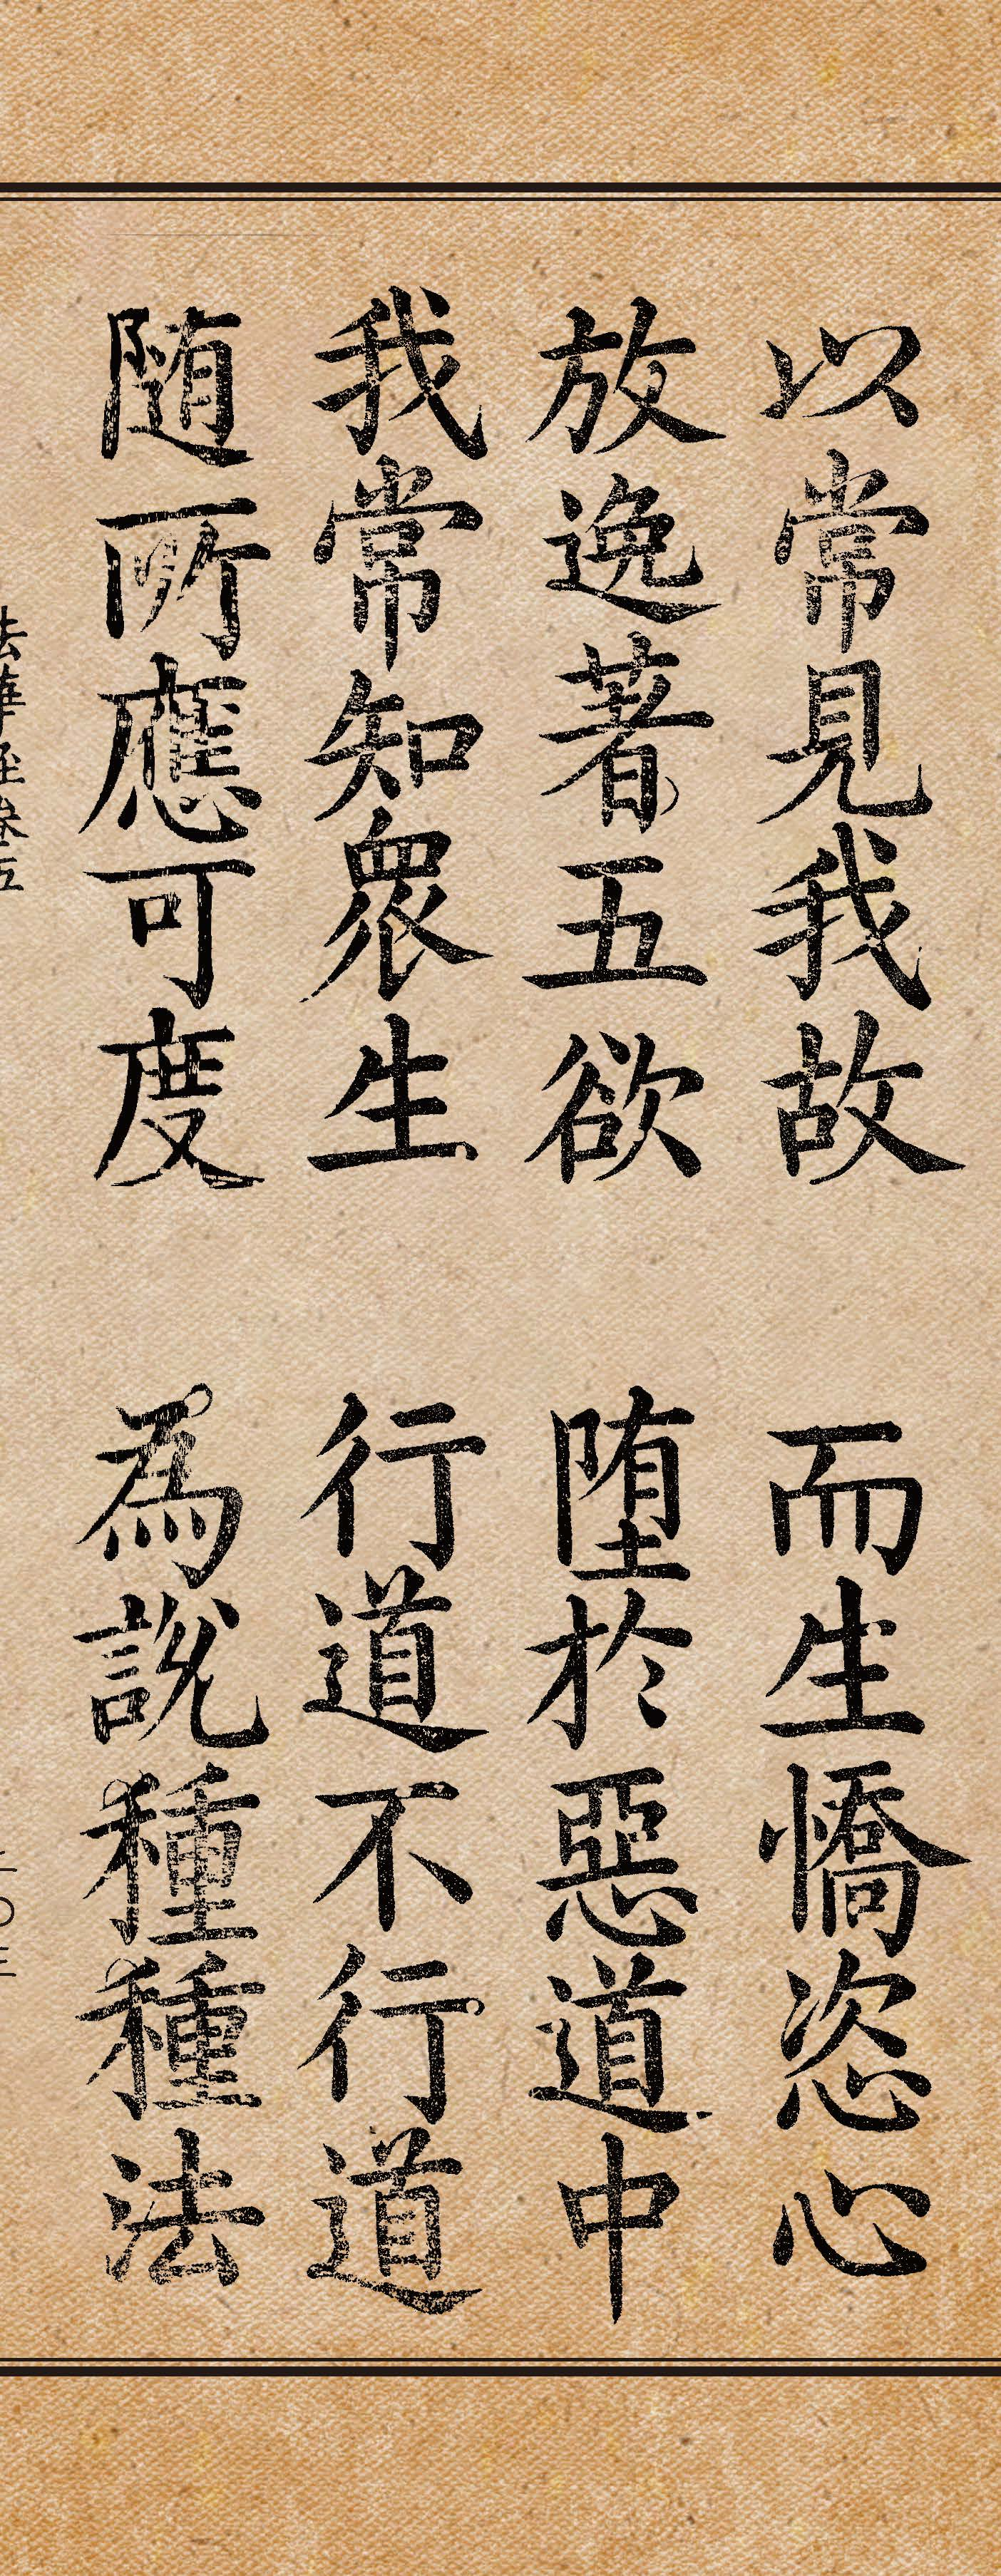 以常見我故 而生憍恣心
放逸著五欲 堕於惡道中
我常知衆生 行道不行道
随所應可度 為說種種法
法華経巻五 二〇三